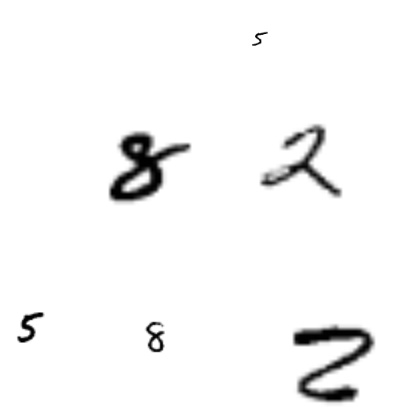 5
8 2
5 8 2